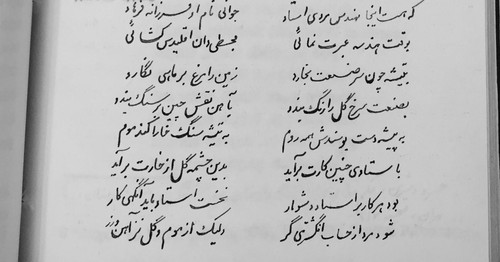 که هست اینجا مهندس مردی استاد جوانی نام او فرزانه فرهاد
بوقت هندسه عبرت نمائی مجسطی دان اقلیدس گشائی
به تیشه چون سر صنعت بخارد زمین را مرغ بر ماهی نگارد
بصنعت سرخ گل را رنگ بندد بآهن نقش چین بر سنگ بندد
به پیشه دست بوسندش همه روم به تیشه سنگ خارا کند موم
باستادی چنین کارت برآید بدین چشمه گل از خارت برآید
بود هر کار بی استاد دشوار نخست استاد باید آنگهی کار
شود مرد از حساب انگشتری گر ولیک از موم و گل نز آهن و زر